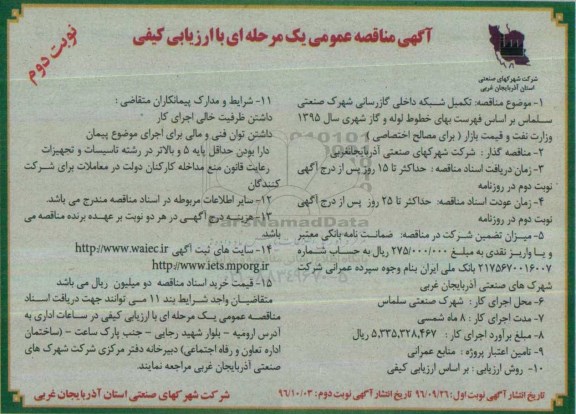 آگهی مناقصه عمومی یک مرحله ای با ارزیابی کیفی
نوبت دوم
شرکت شهرکهای صنعتی
استان آذربایجان غربی
۱- موضوع مناقصه: تکمیل شبکه داخلی گازرسانی شهرک صنعتی
سلماس بر اساس فهرست بهای خطوط لوله و گاز شهری سال ۱۳۹۵
وزارت نفت و قیمت بازار ( برای مصالح اختصاصی )
۲- مناقصه گذار : شرکت شهرکهای صنعتی آذربایجانغربی
۳- زمان دریافت اسناد مناقصه: حداکثر تا ۱۵ روز پس از درج آگهی
نوبت دوم در روزنامه
۴- زمان عودت اسناد مناقصه: حداکثر تا ۲۵ روز پس از درج آگهی
نوبت دوم در روزنامه
۵- میزان تضمین شرکت در مناقصه: ضمانت نامه بانکی معتبر
و یا واریز نقدی به مبلغ ۲۷۵/۰۰۰/۰۰۰ ریال به حساب شماره
۲۱۷۵۶۷۰۰۱۶۰۰۷ بانک ملی ایران بنام وجوه سپرده عمرانی شرکت
شهرک های صنعتی آذربایجان غربی
۶- محل اجرای کار : شهرک صنعتی سلماس
۷- مدت اجرای کار : ۸ ماه شمسی
۸- مبلغ برآورد اجرای کار : ۵,۳۳۵,۳۲۸,۴۶۷ ریال
۹- تامین اعتبار پروژه : منابع عمرانی
۱۰- روش ارزیابی : بر اساس ارزیابی کیفی
۱۱- شرایط و مدارک پیمانکاران متقاضی :
داشتن ظرفیت خالی اجرای کار
داشتن توان فنی و مالی برای اجرای موضوع پیمان
دارا بودن حداقل پایه ۵ و بالاتر در رشته تاسیسات و تجهیزات
رعایت قانون منع مداخله کارکنان دولت در معاملات برای شرکت
کنندگان
۱۲- سایر اطلاعات مربوطه در اسناد مناقصه مندرج می باشد.
۱۳- هزینه درج آگهی در هر دو نوبت بر عهده برنده مناقصه می
باشد
۱۴- سایت های ثبت آگهی http://www.waiec.ir
http://www.iets.mporg.ir
۱۵- قیمت خرید اسناد مناقصه دو میلیون ریال می باشد
متقاضیان واجد شرایط بند ۱۱ می توانند جهت دریافت اسناد
مناقصه عمومی یک مرحله ای با ارزیابی کیفی در ساعات اداری به
آدرس ارومیه - بلوار شهید رجایی - جنب پارک ساعت - (ساختمان
اداره تعاون و رفاه اجتماعی) دبیرخانه دفتر مرکزی شرکت شهرک های
صنعتی آذربایجان غربی مراجعه نمایند.
تاریخ انتشار آگهی نوبت اول: ۹۶/۰۹/۲۶ تاریخ انتشار آگهی نوبت دوم: ۹۶/۱۰/۰۳
شرکت شهرکهای صنعتی استان آذربایجان غربی
ParsNamadData